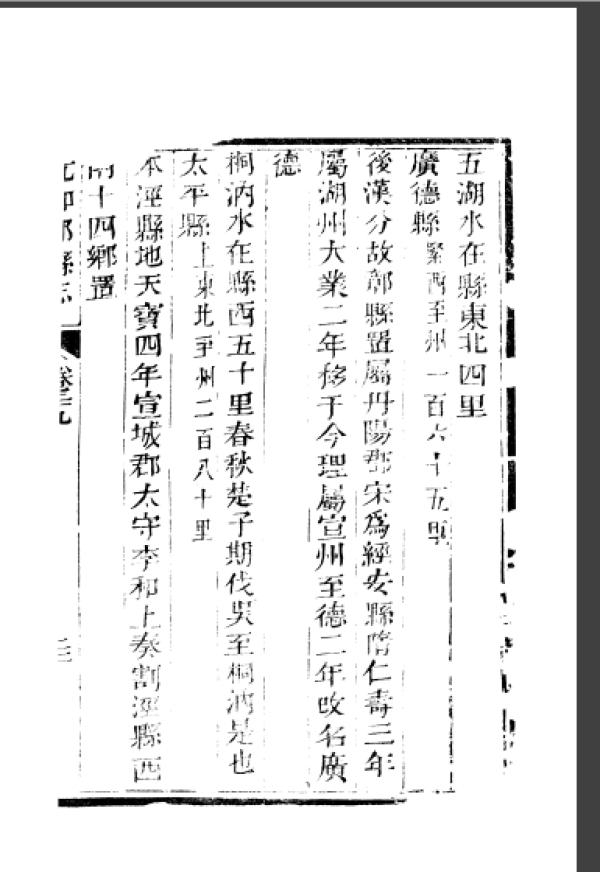 五湖水在縣東北四里
廣德縣緊西至州一百六十五里
後漢分故鄣縣置屬丹陽郡宋爲綏安縣隋仁壽三年
屬湖州大業二年移于今理屬宣州至德二年改名廣
德
桐汭水在縣西五十里春秋楚子期伐吳至桐汭是也
太平縣上東北至州二百八十里
本涇縣地天寶四年宣城郡太守李和上奏割涇縣西
南十四鄉置
元和郡縣志 卷二十九